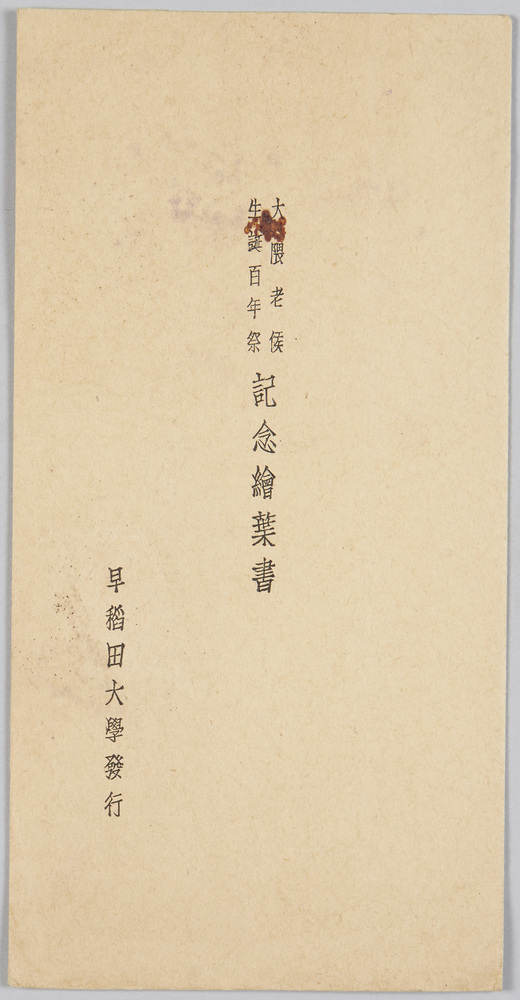 大隈老侯
生誕百年祭
記念繪葉書
早稻田大學發行